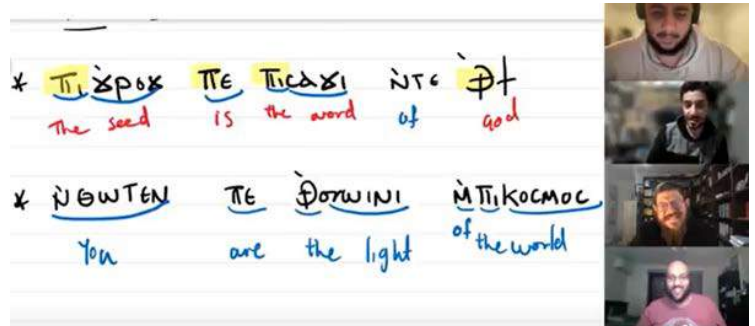 * ⲡⲓϫⲣⲟϫ ⲡⲉ ⲡⲓⲥⲁϫⲓ ⲛ̀ⲧⲉ ⲫ̀ϯ
The seed is the word of god
* ⲛ̀ⲑⲱⲧⲉⲛ ⲡⲉ ⲫ̀ⲟⲩⲱⲓⲛⲓ ⲙ̀ⲡⲓⲕⲟⲥⲙⲟⲥ
You are the light of the world